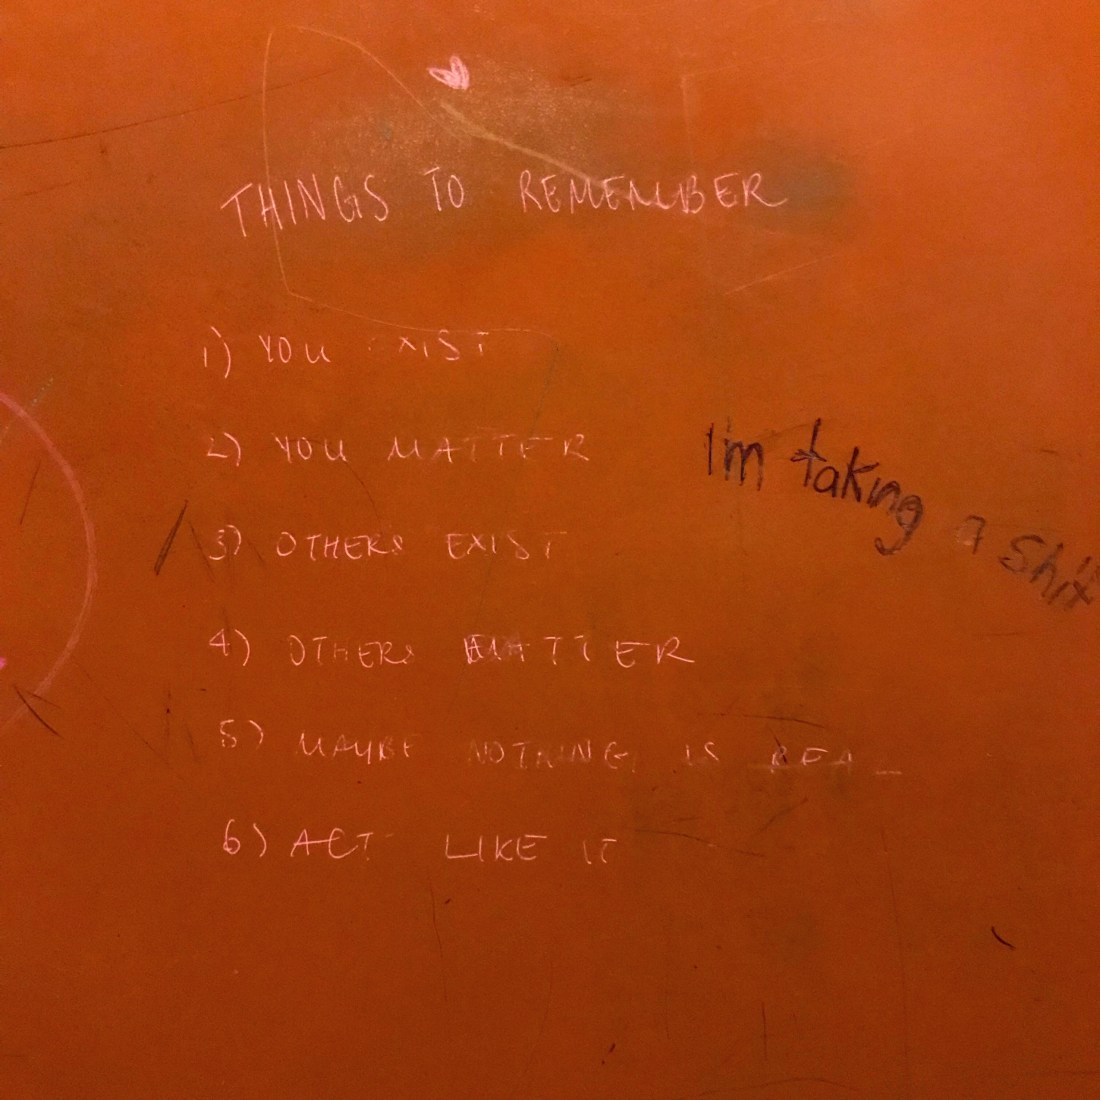 THINGS TO REMEMBER
1) YOU EXIST
2) YOU MATTER
I'm taking a shit
3) OTHERS EXIST
4) OTHERS MATTER
5) MAYBE NOTHING IS REAL
6) ACT LIKE IT